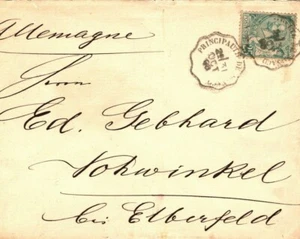 Allemagne
PRINCIPAUTÉ DE
Herrn
Ed. Gebhard
Vohwinkel
bei Elberfeld